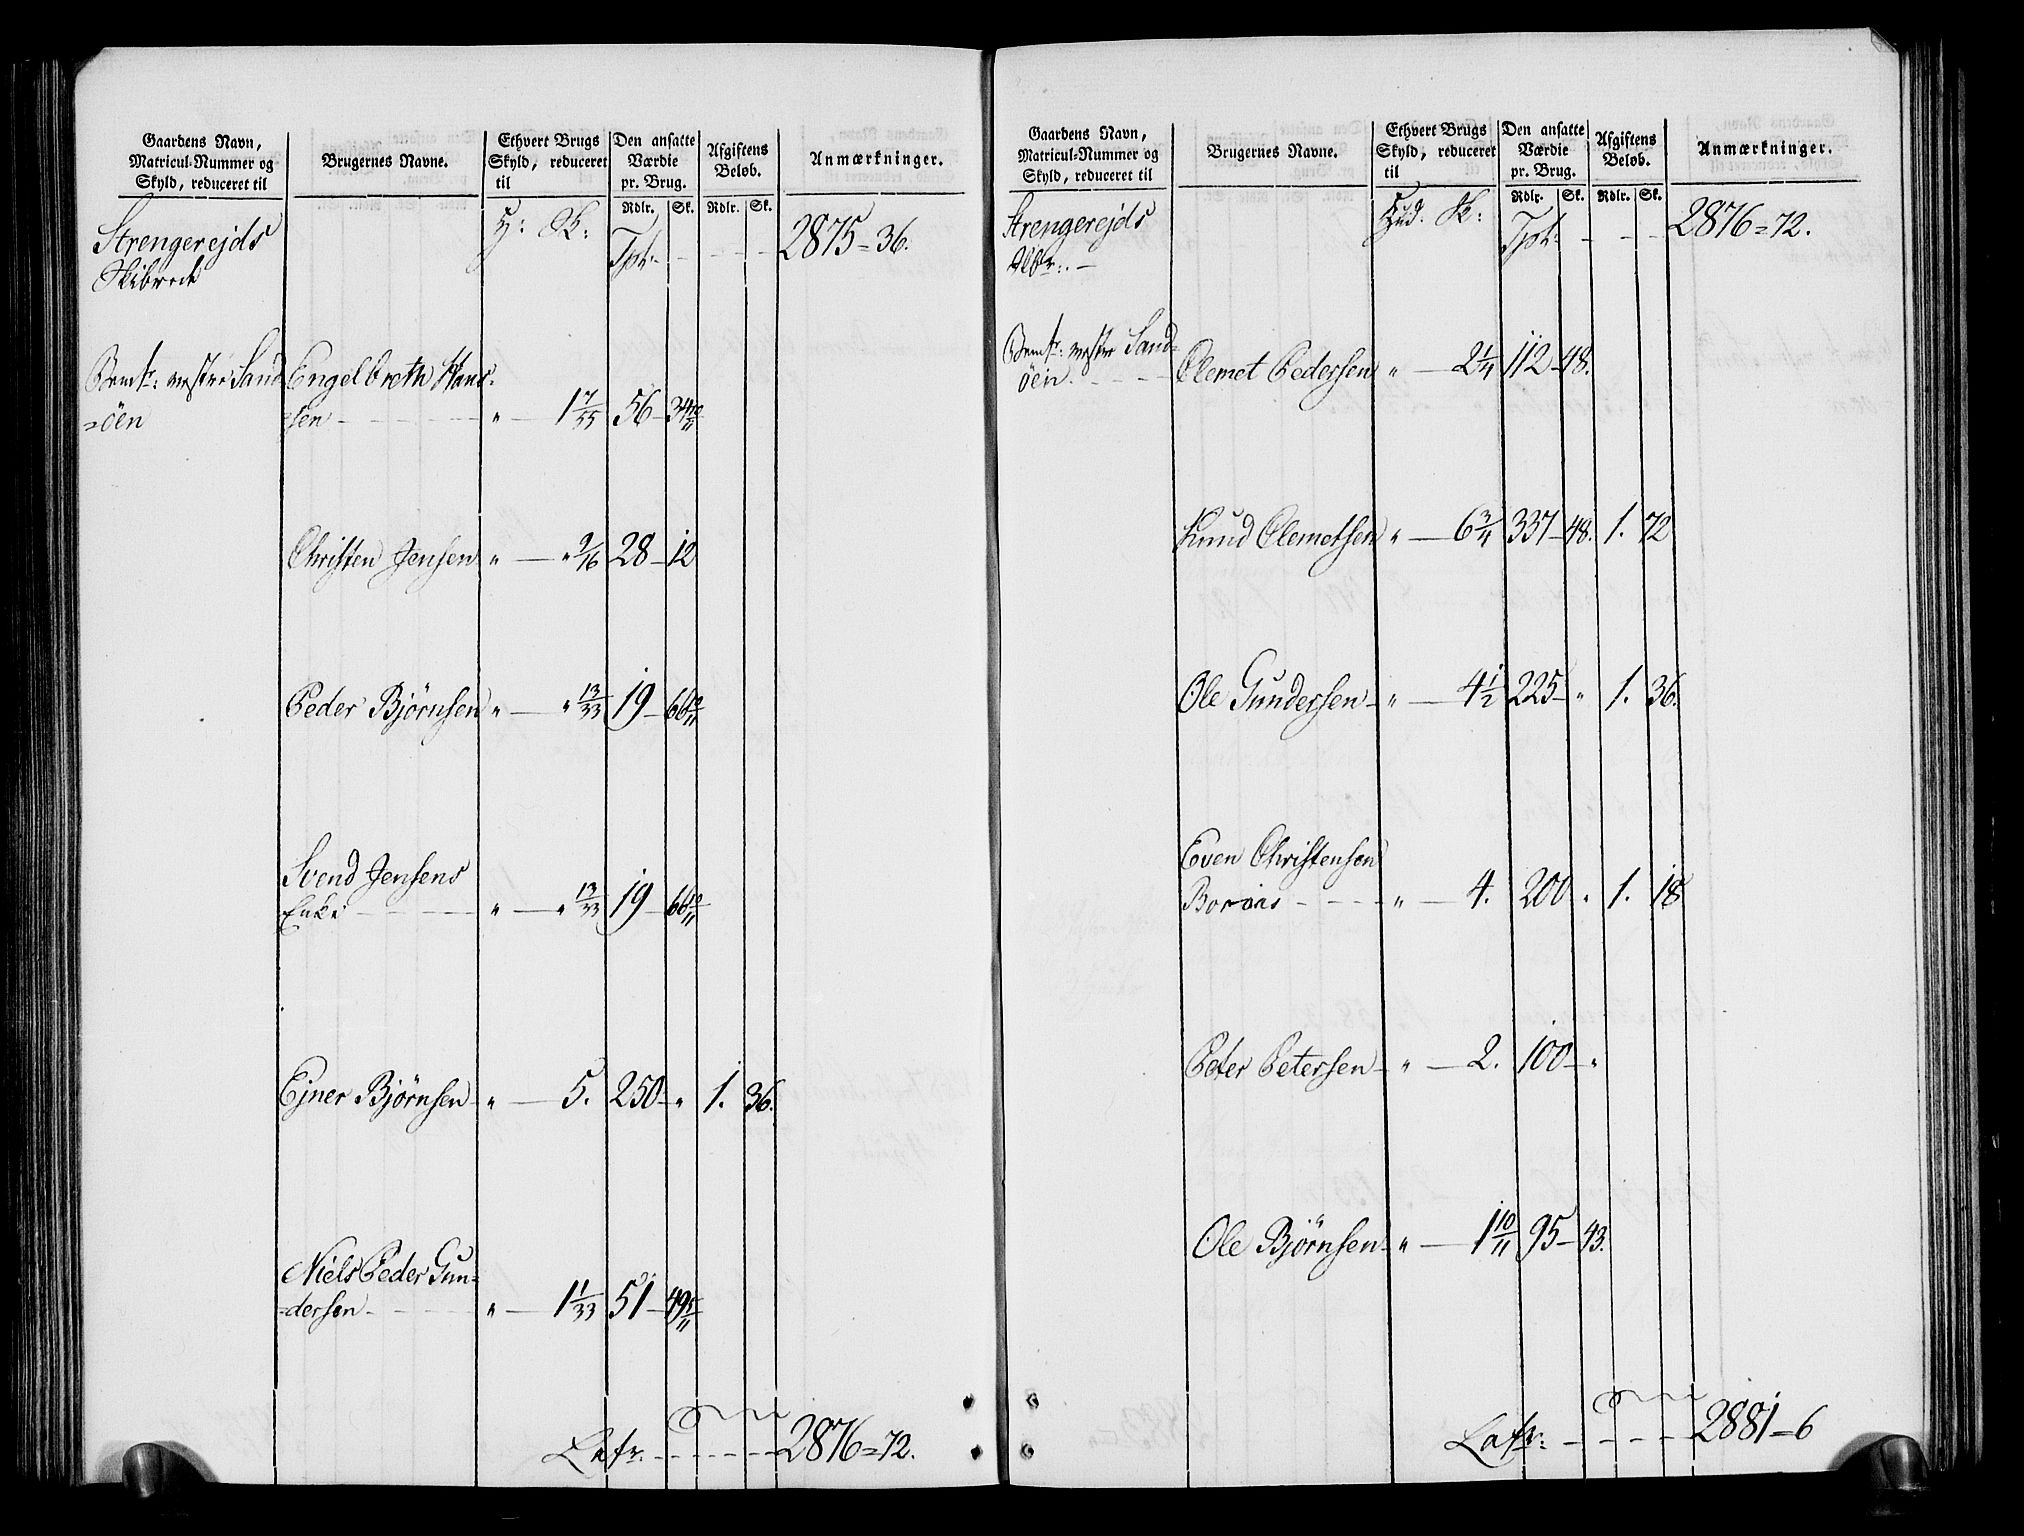 Gaardens Navn,
Matricul-Nummer og
Skyld, reduceret til
Brugernes Navne.
Ethvert Brugs
Skyld, reduceret
til
Den ansatte
Værdie
pr. Brug.
Afgiftens
Beløb.
Anmærkninger.
Rdlr. Sk. Rdlr. Sk.
Strengerejds
Skibrede
H: Sk: Tpt: - - - - 2875=36.
Bemt: vestre Sand
=öen
Engelbreth Hans-
sen - - - " — 1 7/55 56 — 34 10/11
Christen Jensen " — " 9/16 28 — 12
Peder Bjørnsen " — " 13/33 19 — 66 10/11
Svend Jensens
Enke - - - " — " 13/33 19 — 66 10/11
Ejner Bjørnsen " — 5. 250 — " 1. 36.
Niels Peder Gun=
=dersen - - - " — 1 1/33 51 — 49 5/11
Lafr: - - - - 2876=72.
Gaardens Navn,
Matricul-Nummer og
Skyld, reduceret til
Brugernes Navne.
Ethvert Brugs
Skyld, reduceret
til
Den ansatte
Værdie
pr. Brug.
Afgiftens
Beløb.
Anmærkninger.
Rdlr. Sk. Rdlr. Sk.
Strengerejds
Hud: Sk: Tpt: - - - 2876=72.
Bemt: vestre Sand=
öen. - - -
Clemet Pedersen " — 2 1/4 112 — 48.
Knud Clemetsen " — 6 3/4 337 — 48. 1. 72
Ole Gundersen - " — 4 1/2 225 — " 1. 36.
Even Christensen
- - - " — 4. 200 " 1. 18
Peter Petersen - " — 2. 100 — "
Ole Bjørnsen - " — 1 10/11 95 — 43.
Lafr: - - - - 2881=6